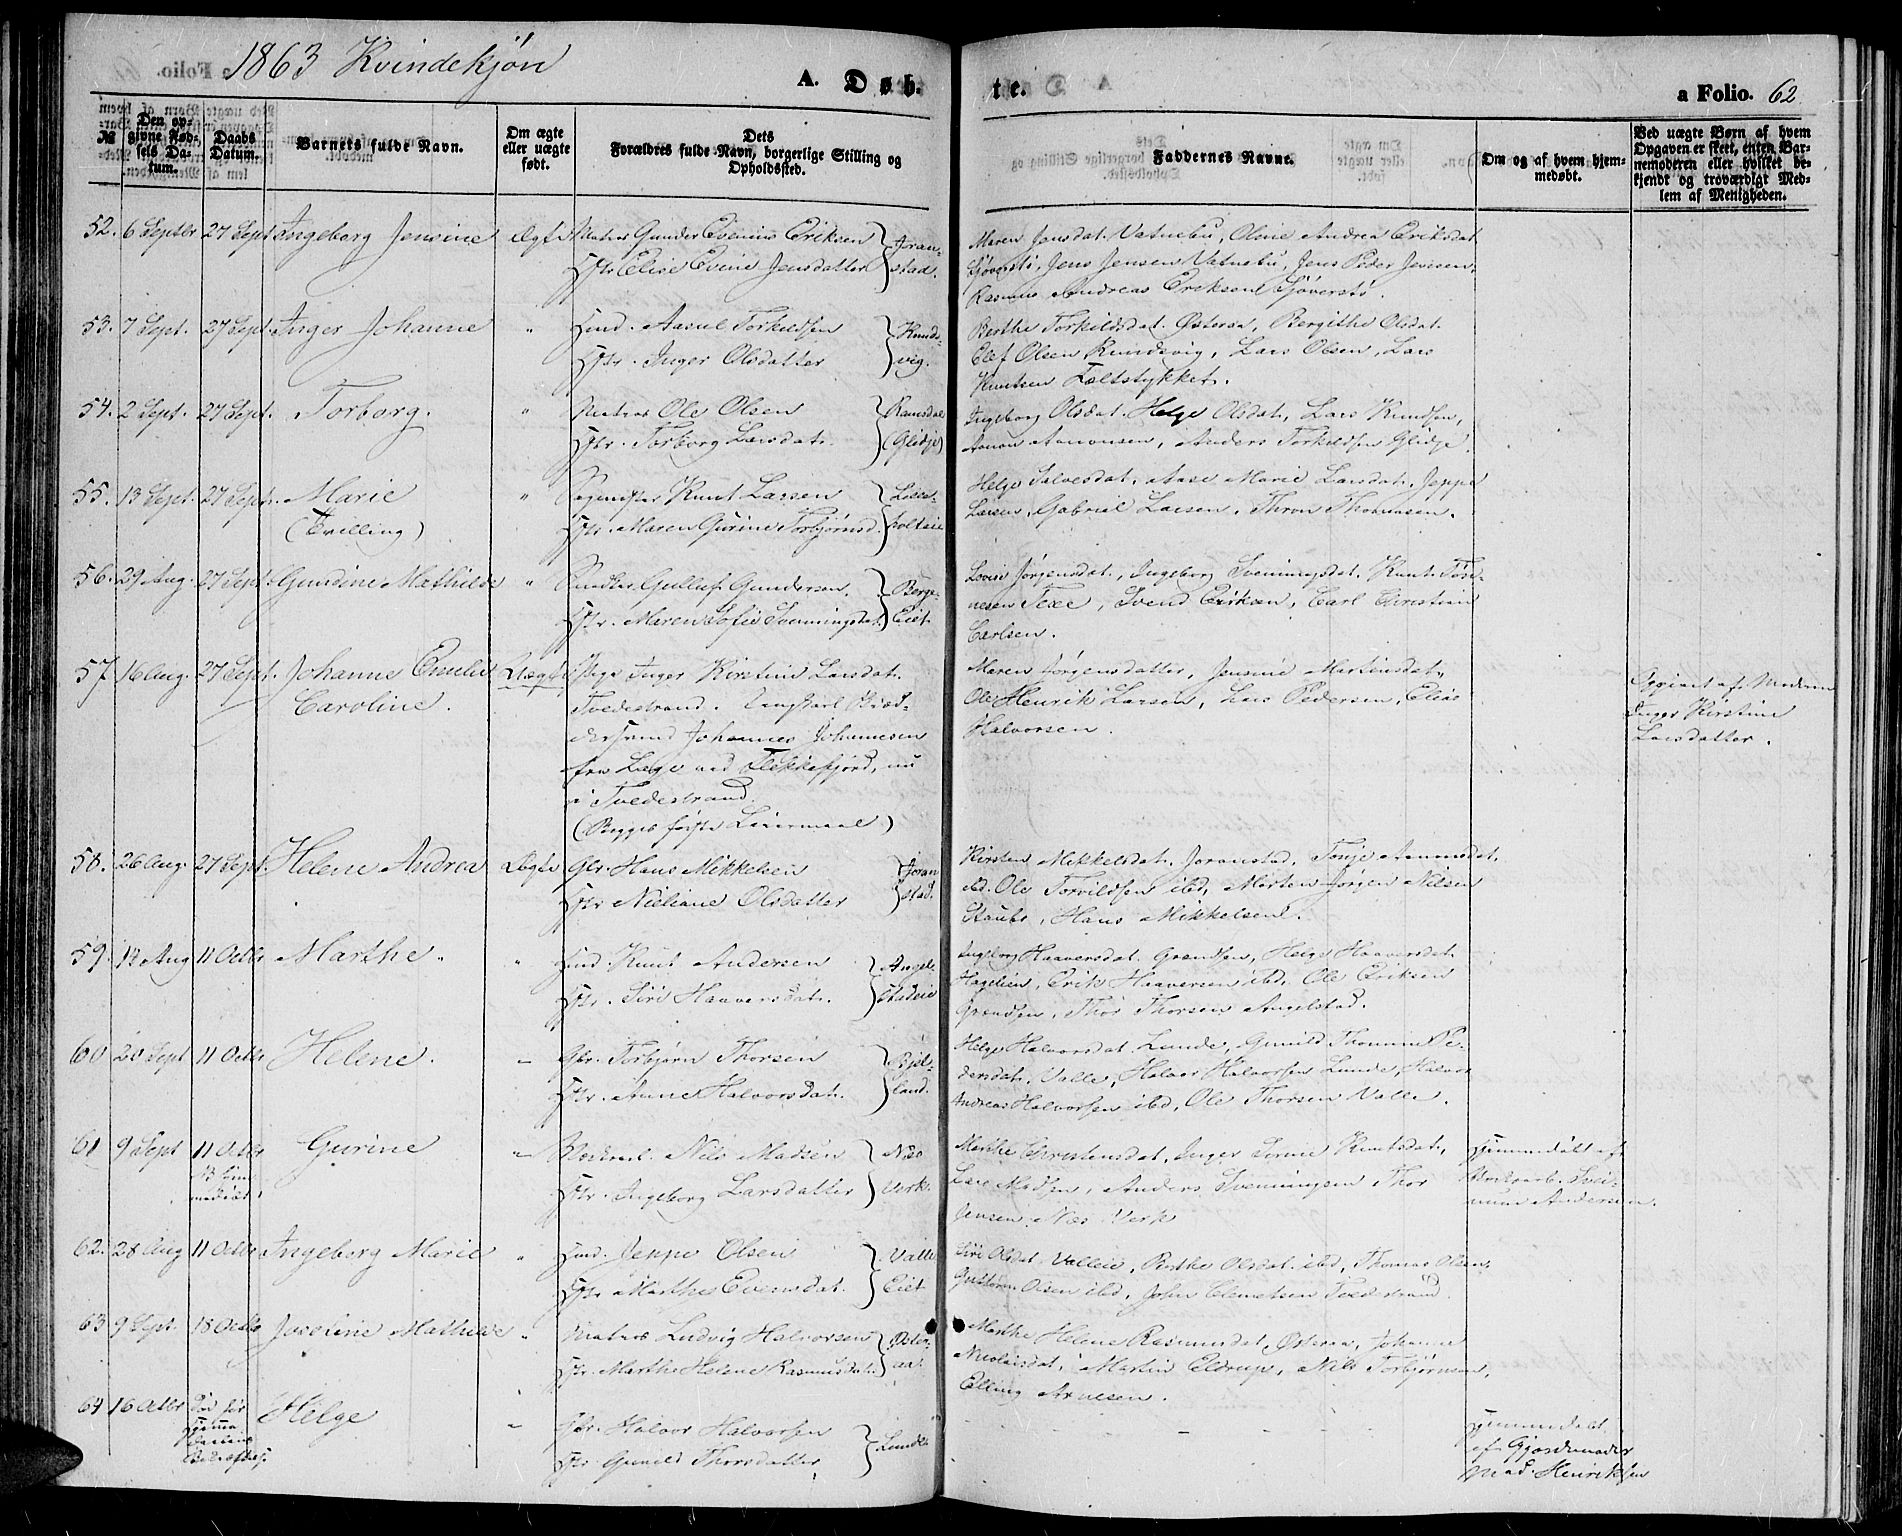 1863 Kvindekjøn
A. Døb-
te.
a Folio. 62
№
Den op-
givne Fød-
sels Da-
tum.
Daabs
Datum.
Barnets fulde Navn.
Om ægte
eller uægte
født.
Dets
Forældres fulde Navn, borgerlige Stilling og
Opholdssted.
Faddernes Navne.
Om og af hvem hjem-
medøbt.
Ved uægte Børn af hvem
Opgaven er skeet, enten Bar-
nemoderen eller hvilket be-
kjendt og troværdigt Med-
lem af Menigheden.
52. 6 Septbr 27 Sept. Ingeborg Jensine Ægte Matros Gunder Evenius Eriksen
Htr Elise Evine Jensdatter
Joran-
stad.
Maren Jensdat. Vatnebu, Oline Andrea Eriksdat
Sjøverstø, Jens Jensen Vatnebu, Jens Peder Jensen,
Rasmus Andreas Eriksen Sjøverstø.
53. 7 Sept. 27 Sept. Inger Johanne " Hmd. Aasul Torkeldsen
Htr. Inger Olsdatter
Knuds-
vig.
Berthe Torkildsdat. Østeraa, Bergithe Olsdat.
Elef Olsen Knudsvig, Lars Olsen, Lars
Knutsen Tæltstykket.
54. 2 Sept. 27 Sept. Torborg. " Matros Ole Olsen
Htr. Torborg Larsdat.
Ramsdal
(Glidje)
Ingeborg Olsdat. Helge Olsdat, Lars Knudsen,
Aanon Aanonsen, Anders Torkeldsen Glidje.
55. 13 Sept. 27 Sept. Marie
(Tvilling)
" Knut Larsen
Htr. Maren Gurine Torbjørnsd.
Helge Salvesdat, Aase Marie Larsdat, Jeppe
Larsen, Gabriel Larsen, Thron Thomassen.
56. 29 Aug. 27 Sept. Gundine Mathilde " Gullef Gundersen,
Htr. Maren Sofie Svenningsdat.
Berge-
Eiet.
Lovise Jørgensdat, Ingeborg Svenningsdat, Knut Tøn-
nesen Texe, Svend Eriksen, Carl Christian
Carlsen.
57. 16 Aug. 27 Sept. Johanne Emilie
Caroline.
Uægte Pige Inger Kirstine Larsdat.
Tvedestrand. Ungkarl
Johannes Johannesen
fra ved Flekkefjord, nu
i Tvedestrand.
(Begges første Leiermaal)
Maren Jørgensdatter, Jensine Martinsdat.,
Ole Henrik Larsen, Lars Pedersen, Elias
Halvorsen.
Opgivet af Moderen
Inger Kirstine
Larsdatter.
58. 26 Aug. 27 Sept. Helene Andrea Ægte Gbr. Hans Mikkelsen
Htr Nieliane Olsdatter
Joran
stad.
Kirsten Mikkelsdat. Joranstad, Tonje Aanonsdat.
ibd. Ole Torvildsen ibd, Morten Jørgen Nilsen
Staubø, Hans Mikkelsen.
59. 12 Aug 11 Octbr Marthe. " Hmd. Knut Andersen
Htr. Siri Haaversdat.
Angel-
stadeie
Ingeborg Haaversdat. Grændsen, Helge Haaversdat.
Hagelien, Erik Haaversen ibd, Ole Eriksen
Grændsen, Thor Thorsen Angelstad.
60 20 Sept 11 Octbr Helene. " Gbr. Torbjørn Thorsen
Htr. Anne Halvorsdat.
Bjel-
land.
Helge Halvorsdat Lunde, Gunild Thomine Pe-
dersdat. Valle, Halvor Halvorsen Lunde, Halvor
Andreas Halvorsen ibd, Ole Thorsen Valle.
61 9 Sept 11 Octbr Gurine " Nils Madsen
Htr. Ingeborg Larsdatter
Næs
Verk.
Marthe Christensdat, Inger Sørine Knutsdat,
Lars Madsen, Anders Svenningsen Thor
Jensen, Næs Verk
Hjemmedøbt af
Andersen.
62. 28 Aug 11 Octbr Ingeborg Marie " Hmd. Jeppe Olsen
Htr Marthe Evensdat.
Valle
Eiet
Siri Olsdat. Valleie, Berthe Olsdat. ibd, Thomas Olsen,
Gustorm Olsen ibd, John Clemetsen Tvedestrand.
63 9 Sept. 18 Octbr Josefine Mathilde " Matros Ludvig Halvorsen
Htr. Marthe Helene Rasmusdat.
Øster-
aa.
Marthe Helene Rasmusdat, Østeraa, Johanne
Nicolaisdat, Martin Eldrup, Nils Torbjørnsen,
Elling Arnesen.
64 16 Octbr Død før
Helge " Gbr. Halvor Halvorsen
Htr Gunild Thorsdatter
Lunde
Hjemmedøbt
af Gjordemoder
Mad. Henriksen